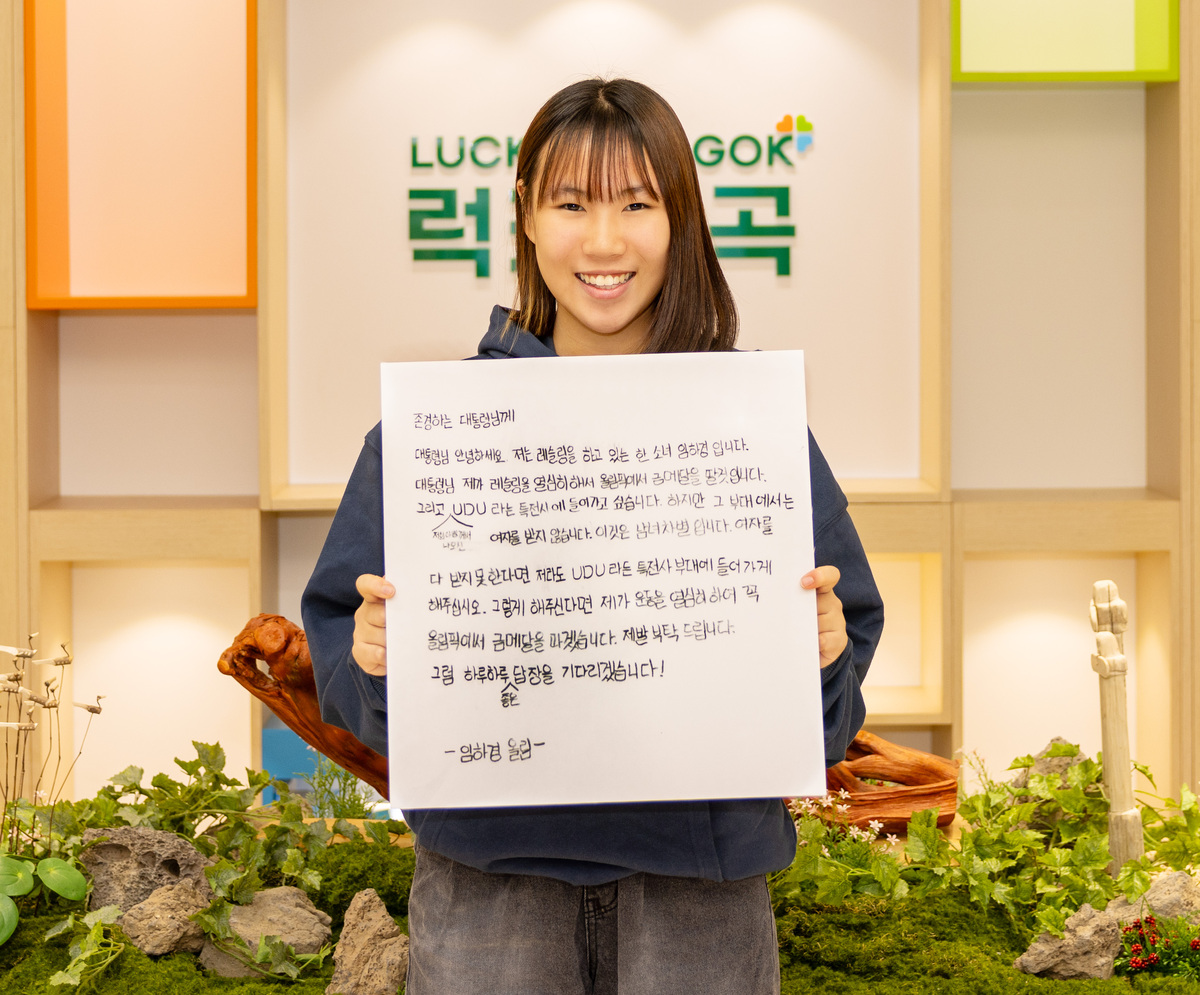 LUCK GOK
럭 곡
존경하는 대통령님께
대통령님 안녕하세요. 저는 레슬링을 하고 있는 한 소녀 임하경 입니다.
대통령님 제가 레슬링을 열심히 해서 올림픽에서 금메달을 딸것 입니다.
그리고 UDU 라는 특전사에 들어가고 싶습니다. 하지만 그 부대에서는
여자를 받지 않습니다. 이것은 남녀차별 입니다. 여자를
다 받지 못한다면 저라도 UDU 라든 특전사 부대에 들어가게
해주십시오. 그렇게 해주신다면 제가 운동을 열심히 하여 꼭
올림픽에서 금메달을 따겠습니다. 제발 부탁 드립니다.
그럼 하루하루 답장을 기다리겠습니다!
좋은
- 임하경 올림 -